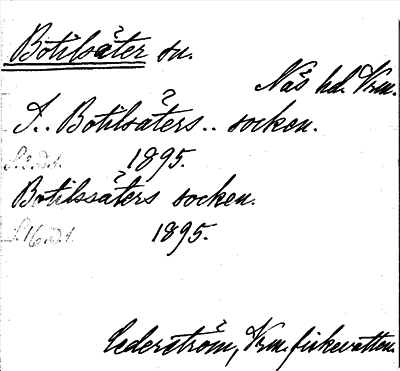 Botilsäter sn.
Näs hd. Vrm.
I.. Botilsäters.. socken.
S. 2. D.1. 1895.
Botilssäters socken.
S. 16. D.1. 1895.
Cederström, Vrm. fiskevatten.